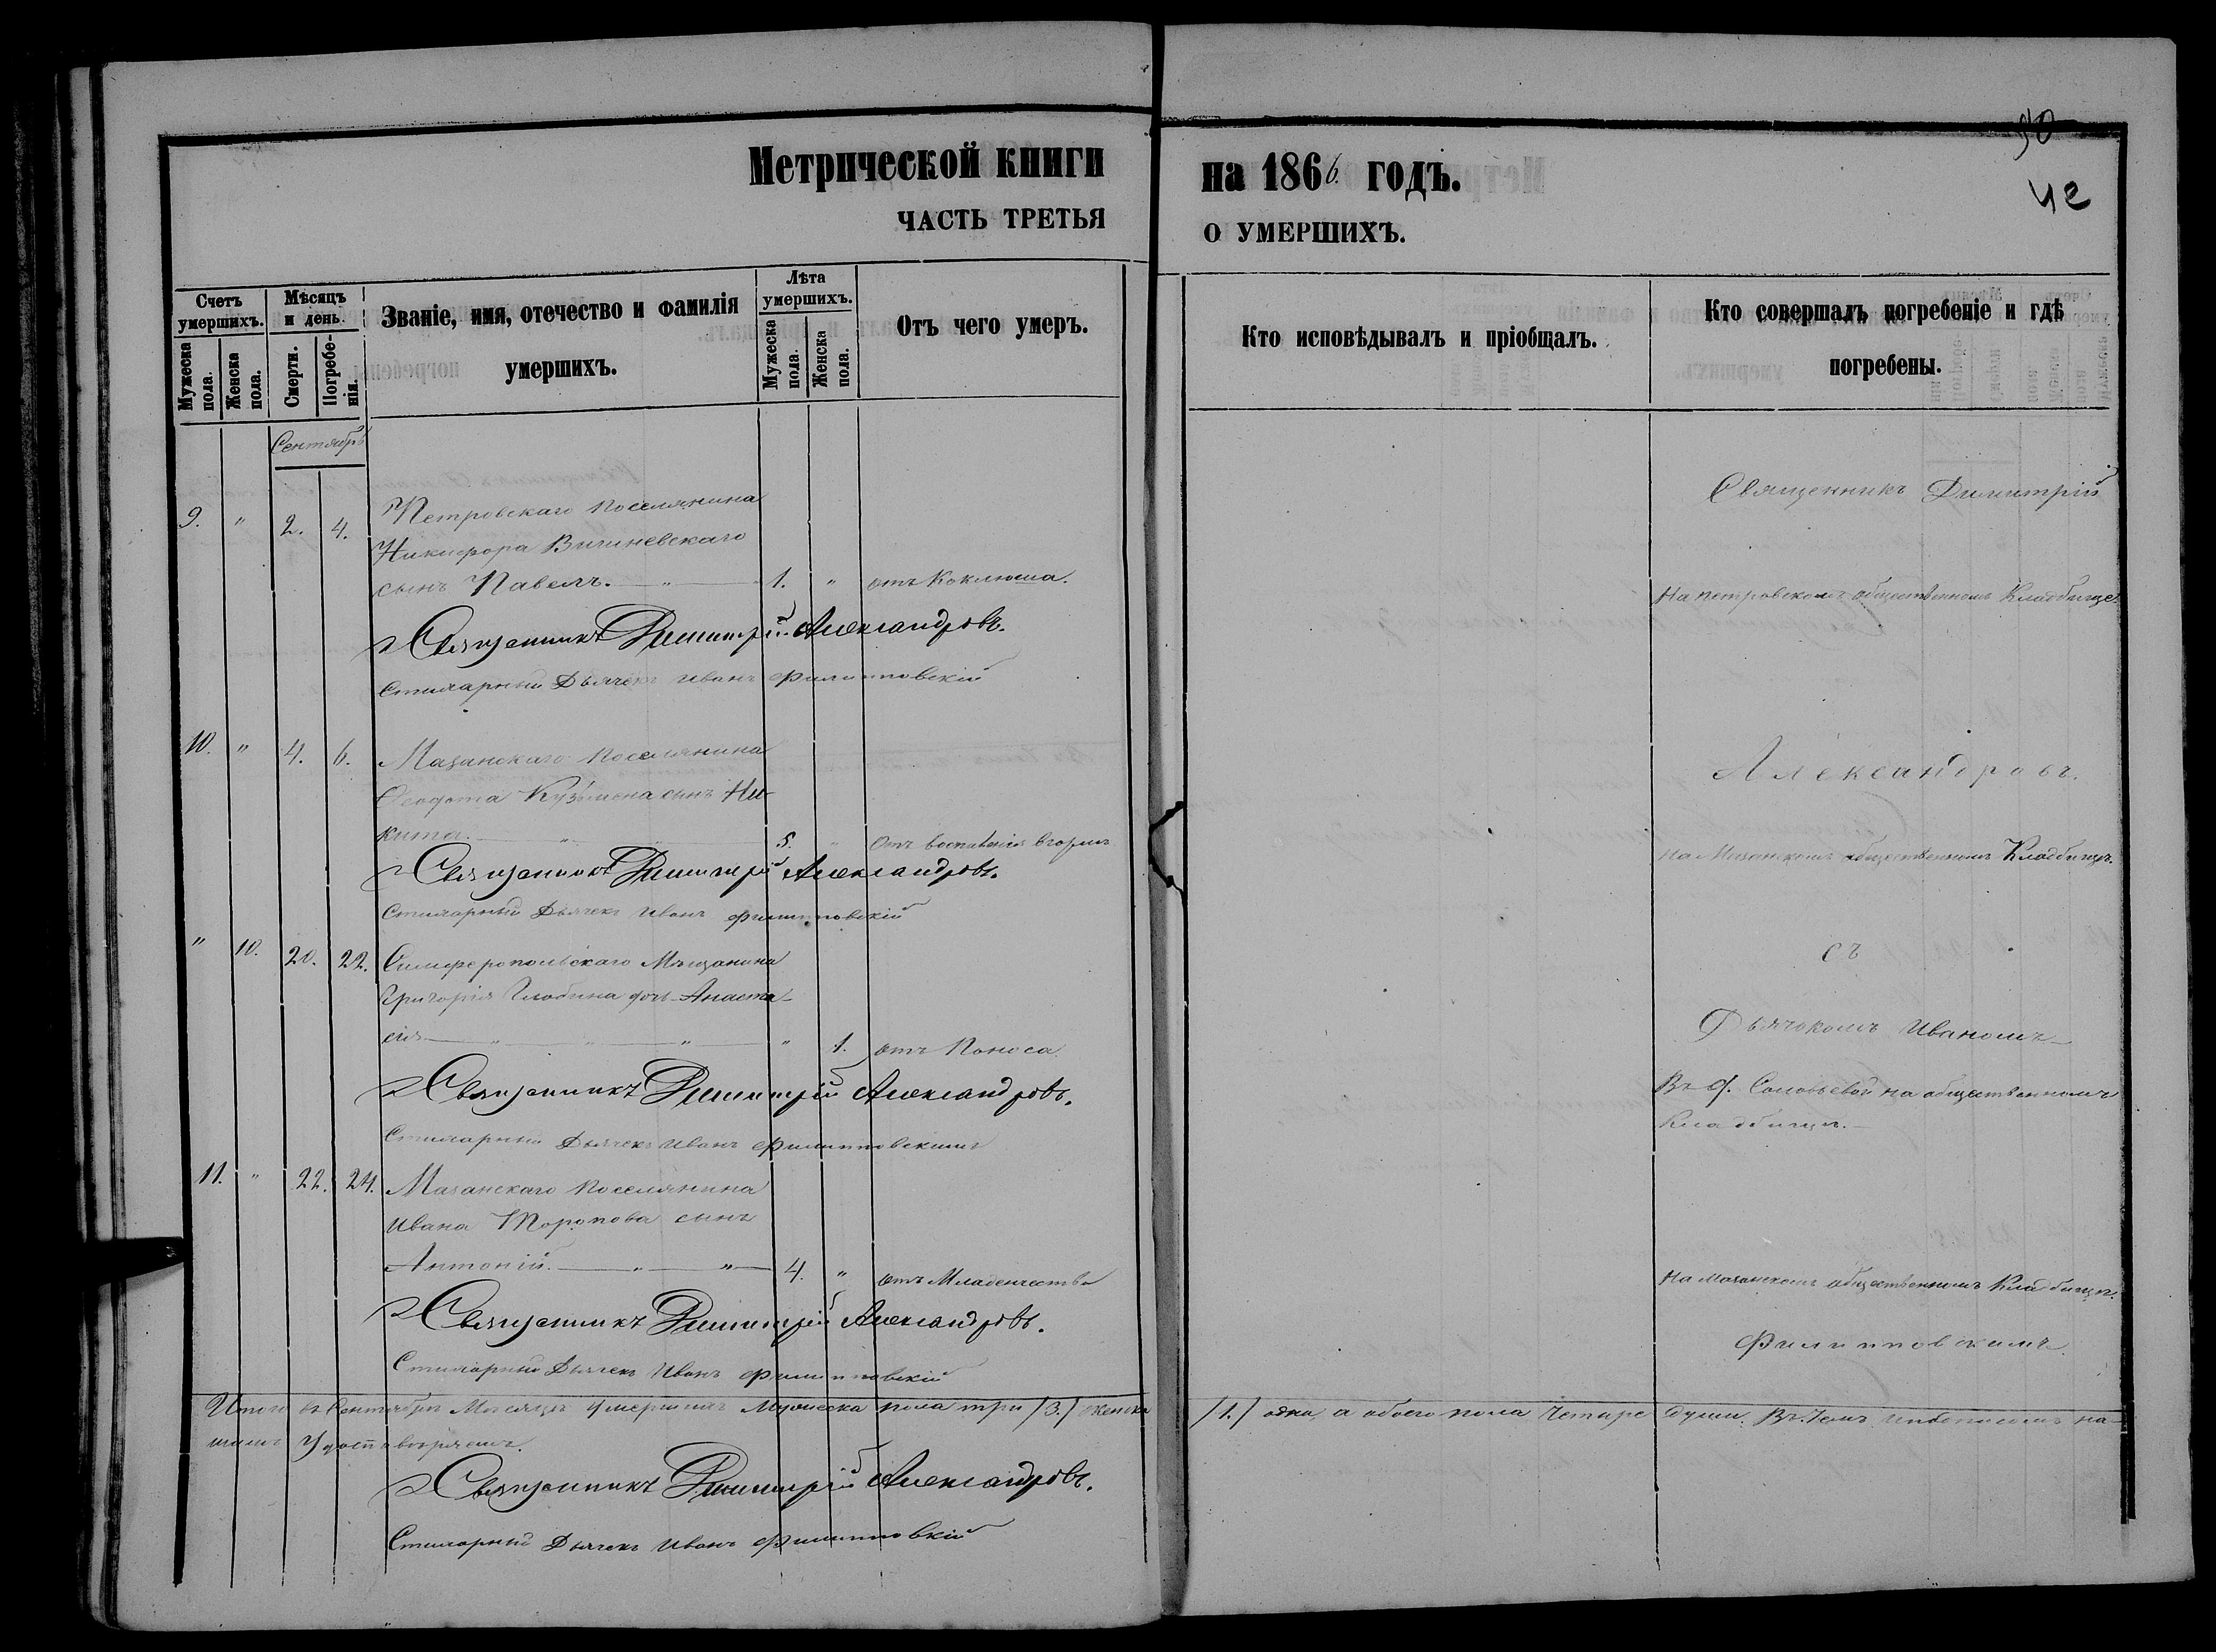 90
42
Метрической книги на 1866. годъ.
ЧАСТЬ ТРЕТЬЯ О УМЕРШИХЪ.
Счетъ умершихъ.
Мужеска пола.
Женска пола.
Мѣсяцъ и день.
Смерти.
Погребенія.
Званіе, имя, отечество и фамилія
умершихъ.
Лѣта умершихъ.
Мужеска пола.
Женска пола.
Отъ чего умеръ.
Кто исповѣдывалъ и пріобщалъ.
Кто совершалъ погребеніе и гдѣ
погребены.
Сентябрь
9. " 2. 4. Петровскаго поселянина
Никифора
сынъ Павелъ. — " — 1. " отъ Коклюша.
Священникъ Димитрій Александровъ.
Стихарный Дьячекъ Иванъ Филипповскій
Священникъ Димитрій
На петровскомъ общественномъ Кладбище.
10. " 4. 6. Мазанскаго поселянина
Феодота Кузьмена сынъ Ни-
кита. — " — 5. " Отъ
Священникъ Димитрій Александровъ.
Стихарный Дьячекъ Иванъ Филипповскій
Александровъ.
на Мазанскомъ общественномъ Кладбищѣ.
" 10. 20. 22. Симферопольскаго Мѣщанина
Григорія дочь Анаста-
сія — " — " — " — " 1. отъ Поноса
Священникъ Димитрій Александровъ.
Стихарный Дьячекъ Иванъ Филипповскій
съ
Дьячкомъ Иваномъ
Въ д. Соловьевой на общественномъ
Кладбищѣ.
11. " 22. 24. Мазанскаго поселянина
Ивана Торопова сынъ
Антоній. — " — " — 4. " отъ Младенчества
Священникъ Димитрій Александровъ.
Стихарный Дьячекъ Иванъ Филипповскій
На мазанскомъ общественномъ Кладбищѣ.
Филипповскимъ
Итого въ Сентябрѣ Мѣсяцѣ умершихъ Мужеска пола три /3./ женска /1./ одна, а обоего пола Четыре души. Въ чемъ на-
шимъ
Священникъ Димитрій Александровъ.
Стихарный Дьячекъ Иванъ Филипповскій